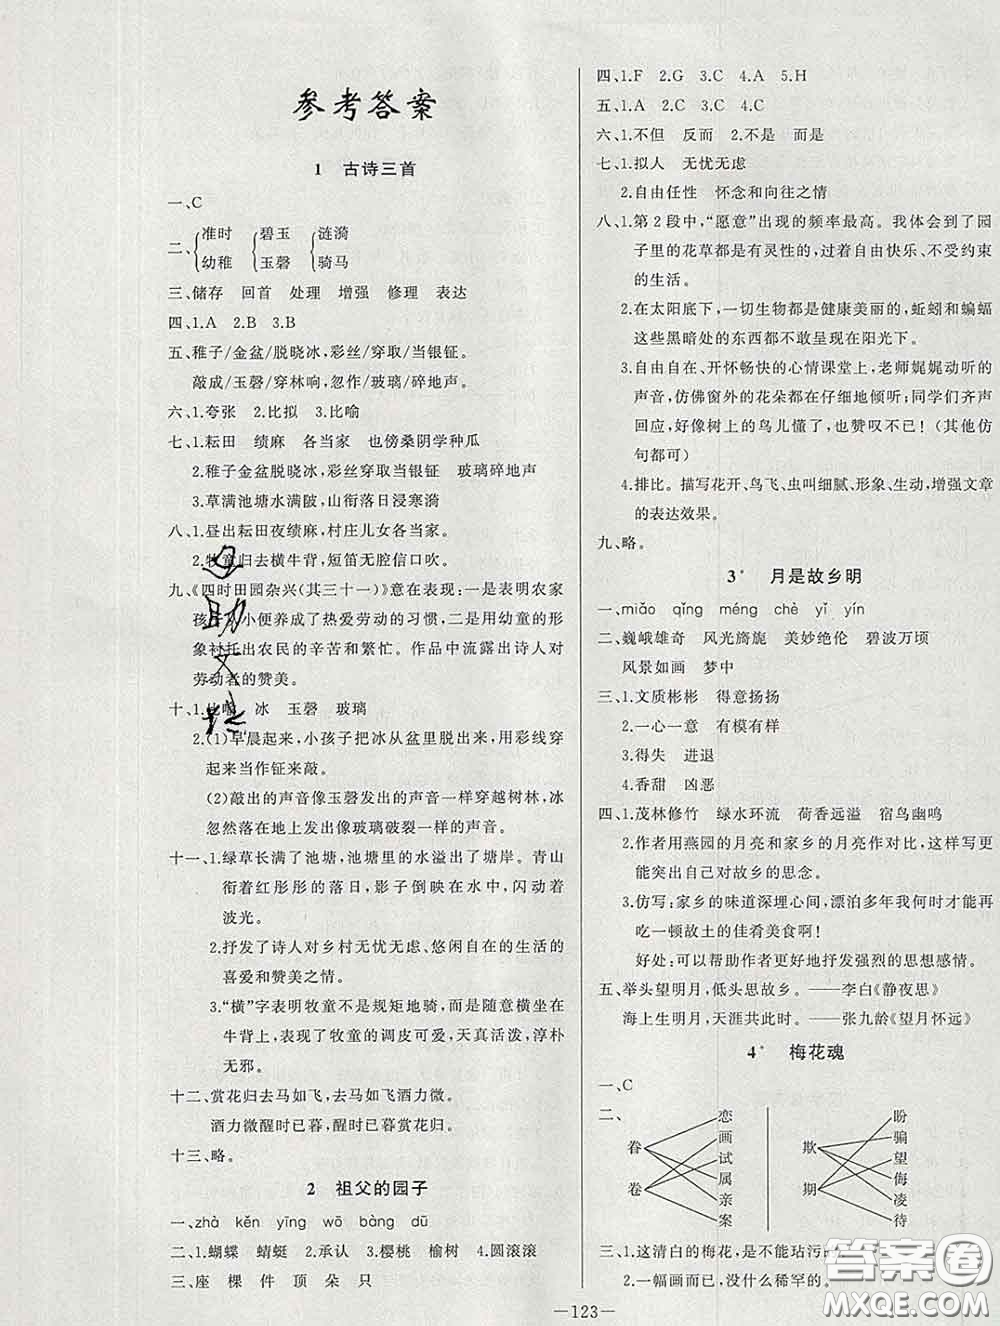 参考答案
1 古诗三首
一、C
二、{准时 {碧玉 {涟漪
幼稚 玉磬 骑马
三、储存 回首 处理 增强 修理 表达
四、1.A 2.B 3.B
五、稚子/金盆/脱晓冰，彩丝/穿取/当银钲。
敲成/玉磬/穿林响，忽作/玻璃/碎地声。
六、1.夸张 2.比拟 3.比喻
七、1.耘田 绩麻 各当家 也傍桑阴学种瓜
2.稚子金盆脱晓冰，彩丝穿取当银钲 玻璃碎地声
3.草满池塘水满陂，山衔落日浸寒漪
八、1.昼出耘田夜绩麻，村庄儿女各当家。
2.牧童归去横牛背，短笛无腔信口吹。
九、《四时田园杂兴(其三十一)》意在表现：一是农家
孩子从小便养成了热爱劳动的习惯，二是用幼童的形
象衬托出农民的辛苦和繁忙。作品中流露出诗人对
劳动者的赞美。
十、1.比喻 冰 玉磬 玻璃
2.(1)早晨起来，小孩子把冰从盆里脱出来，用彩线穿
起来当作钲来敲。
(2)敲出的声音像玉磬发出的声音一样穿越树林，冰
忽然落在地上发出像玻璃破裂一样的声音。
十一、1.绿草长满了池塘，池塘里的水溢出了塘岸。青山
衔着红彤彤的落日，影子倒映在水中，闪动着
波光。
2.抒发了诗人对乡村无忧无虑、悠闲自在的生活的
喜爱和赞美之情。
3.“横”字表明牧童不是规矩地骑，而是随便横坐在
牛背上，表现了牧童的调皮可爱，天真活泼，淳朴
无邪。
十二、赏花归去马如飞，去马如飞酒力微。
酒力微醒时已暮，醒时已暮赏花归。
十三、略。
2 祖父的园子
一、zhà kěn yīng wō bàng dū
二、1.蝴蝶 蜻蜓 2.承认 3.樱桃 榆树 4.圆滚滚
三、座 棵 件 顶 朵 只
四、1.F 2.G 3.C 4.A 5.H
五、1.A 2.C 3.C 4.C
六、1.不但 反而 2.不是 而是
七、1.拟人 无忧无虑
2.自由任性 怀念和向往之情
八、1.第2段中，“愿意”出现的频率最高。我体会到了园
子里的花草都是有灵性的，过着自由快乐、不受约束
的生活。
2.在太阳底下，一切生物都是健康美丽的，蚯蚓和蝙蝠
这些黑暗处的东西都不敢呈现在阳光下。
3.自由自在、开怀畅快的心情课堂上，老师娓娓动听的
声音，仿佛窗外的花朵都在仔细地倾听；同学们齐声
回应，好像树上的鸟儿懂了，也赞叹不已！(其他仿
句都可)
4.排比。描写花开、鸟飞、虫叫细腻、形象、生动，增强文章
的表达效果。
九、略。
3* 月是故乡明
一、miǎo qǐng méng chè yǐ yín
二、巍峨雄奇 风光旖旎 美妙绝伦 碧波万顷
风景如画 梦中
三、1.文质彬彬 得意扬扬
2.一心一意 有模有样
3.得失 进退
4.香甜 凶恶
四、1.茂林修竹 绿水环流 荷香远溢 宿鸟幽鸣
2.作者用燕园的月亮和家乡的月亮作对比，这样写更
能突出自己对故乡的思念。
3.仿写：家乡的味道深埋心间，漂泊多年我何时才能再
吃一顿故土的佳肴美食啊！
好处：可以帮助作者更好地抒发强烈的思想感情。
五、举头望明月，低头思故乡。——李白《静夜思》
海上生明月，天涯共此时。——张九龄《望月怀远》
4* 梅花魂
一、C
二、
眷 卷
恋 画 试 属 亲 案
欺 期
盼 骗 望 侮 凌 待
三、1.这清白的梅花，是不能玷污的
2.一幅画而已，没什么稀罕的。
答案圈
MXQE.COM
—123—